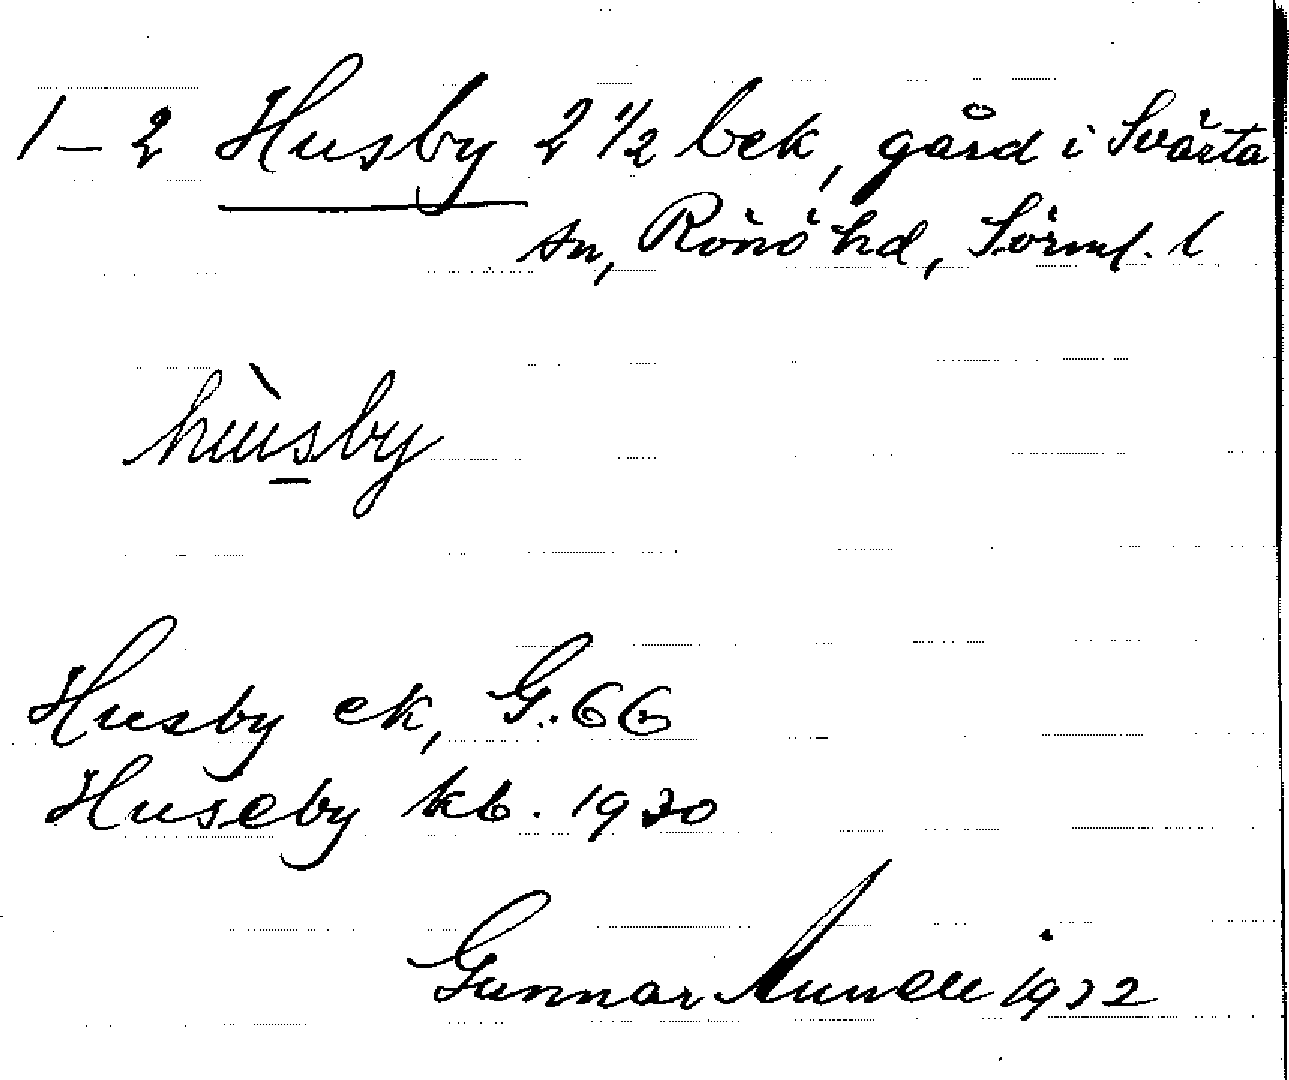 1–2 Husby 2 1/2 bek, gård i Svärta
sn, Rönö hd, Sörml. l
hùsby
Husby ek, G. 66
Huseby kb. 1930
Gunnar 1932